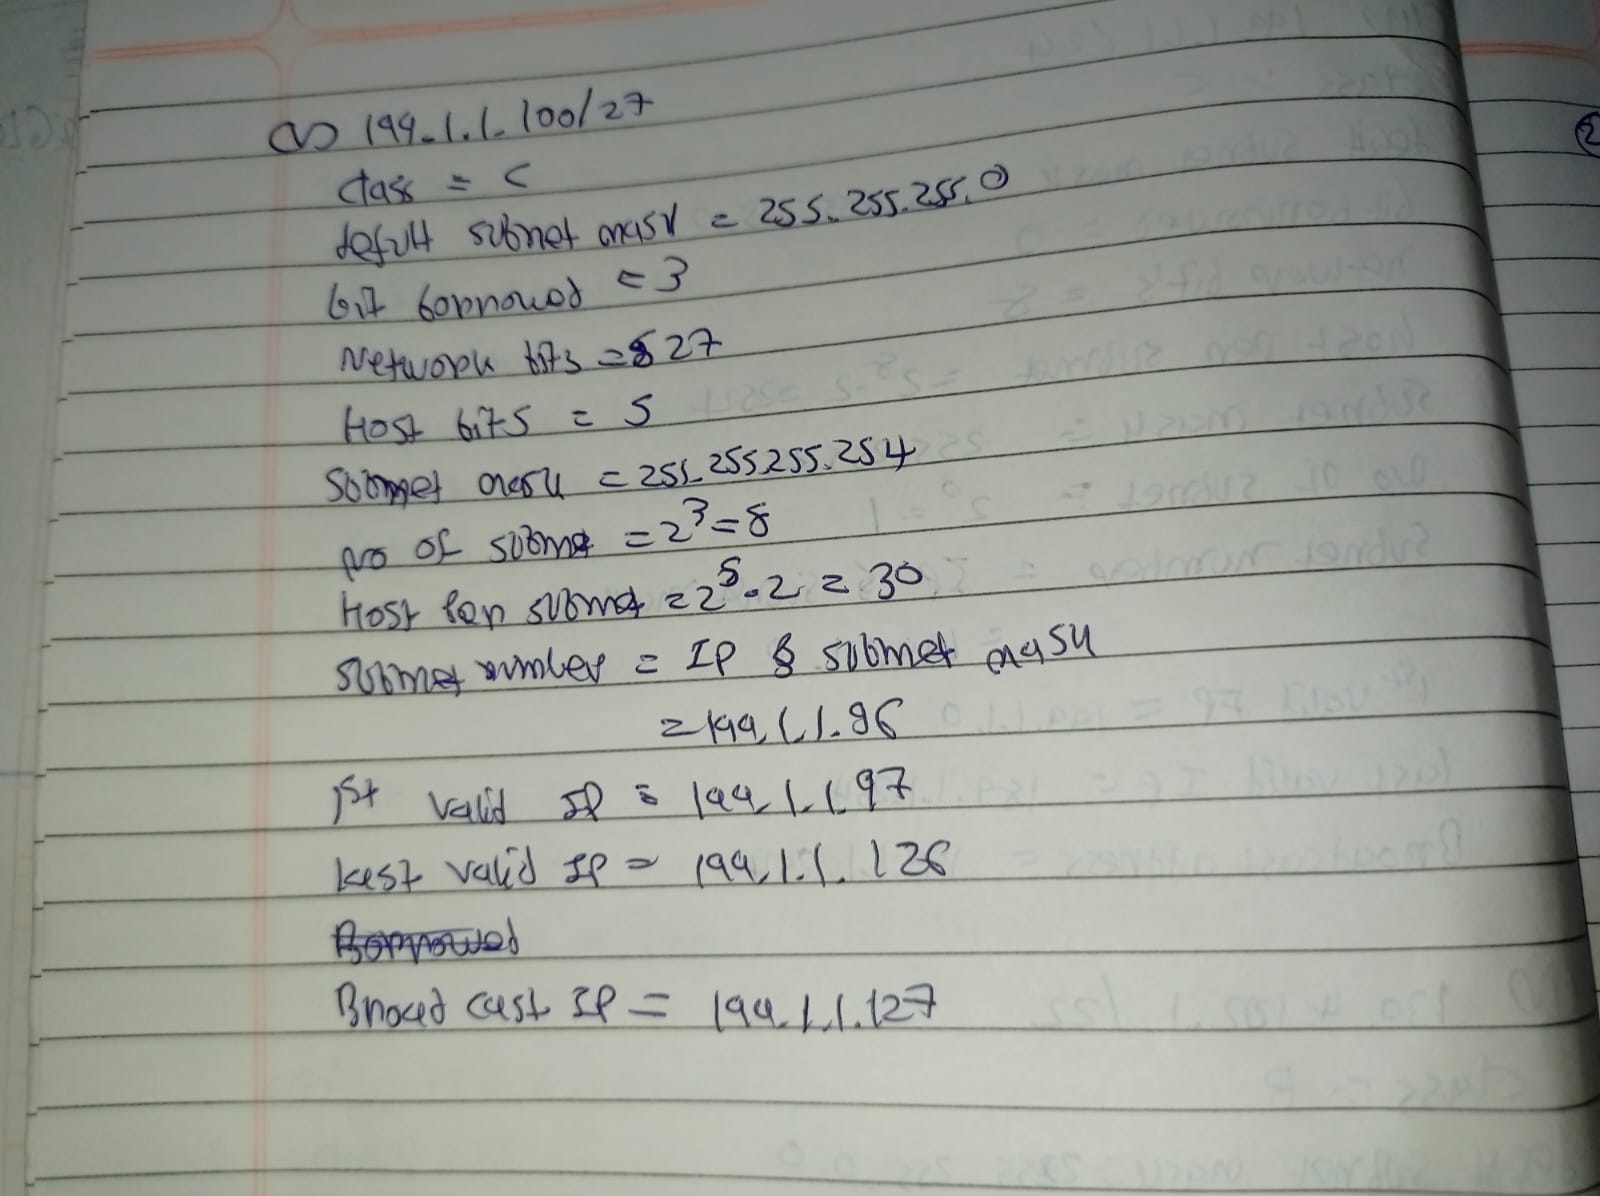 (v) 199.1.1.100/27
class = C
defult subnet mask = 255.255.255.0
bit borrowed = 3
Network bits = 27
Host bits = 5
Subnet mask = 255.255.255.254
no of subnet = 2^3 = 8
Host per subnet = 2^5 - 2 = 30
Subnet number = IP & subnet mask
= 199.1.1.96
1st valid IP = 199.1.1.97
Last valid IP = 199.1.1.126
Borrowed
Broad cast IP = 199.1.1.127
2